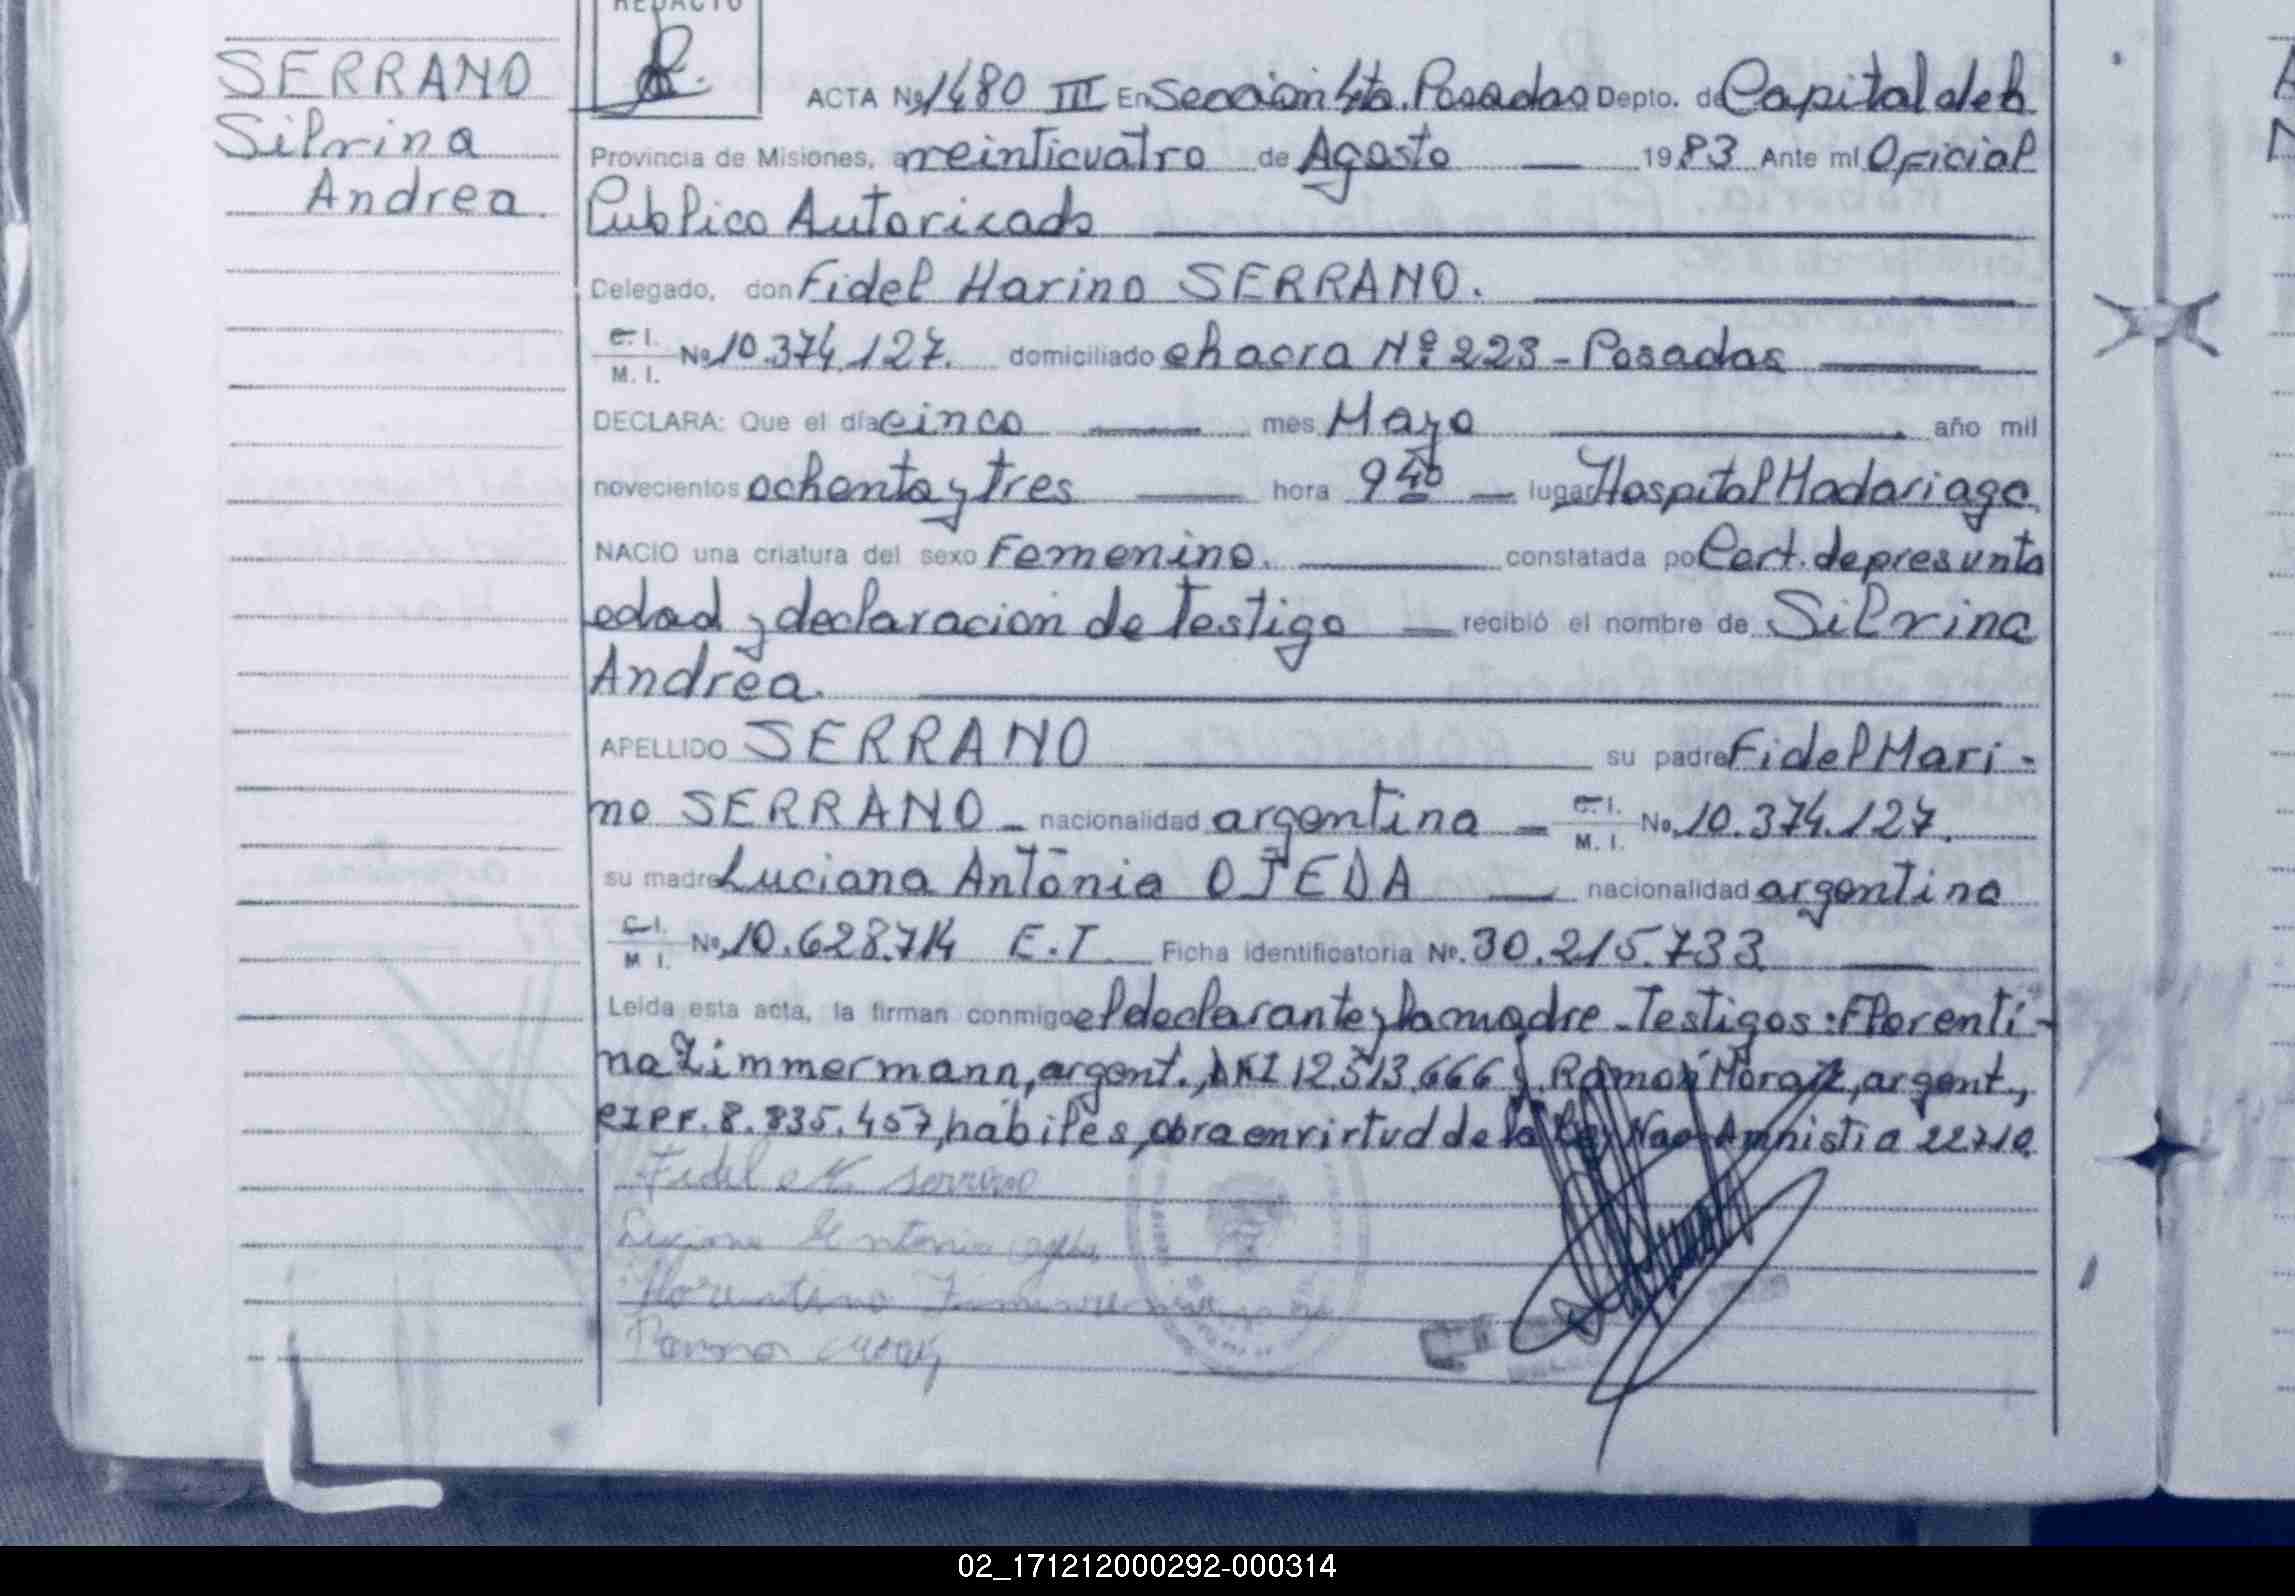 REDACTO
SERRANO
Silvina
Andrea.
ACTA Nº 1480 III En Sección 4ta. Posadas Depto. de Capital de la
Provincia de Misiones, a veinticuatro de Agosto — 1983 Ante mí Oficial
Publico Autorizado
Delegado, don Fidel Marino SERRANO.
C. I.
M. I. Nº 10.374.127. domiciliado chacra Nº 223 - Posadas
DECLARA: Que el día cinco mes Mayo año mil
novecientos ochenta y tres hora 9 40 lugar Hospital Madariaga
NACIO una criatura del sexo Femenino. constatada por Cert. de presunta
edad y declaracion de Testigo recibió el nombre de Silvina
Andrea.
APELLIDO SERRANO su padre Fidel Mari-
no SERRANO - nacionalidad argentina - C. I.
M. I. No. 10.374.127.
su madre Luciana Antonia OJEDA nacionalidad argentina
C. I.
M. I. No. 10.628.714 E.T Ficha identificatoria Nº. 30.215.733
Leida esta acta, la firman conmigo el declarante y la madre - Testigos: Florenti-
na Zimmermann, argent., DNI 12.513.666 y Ramon argent.,
CIPF. 8.835.457, habiles, obra en virtud de la Ley Nac. Amnistia 22710.
Fidel M Serrano
Luciana Antonia Ojeda
Florentina Zimmermann
Ramon
02_171212000292-000314